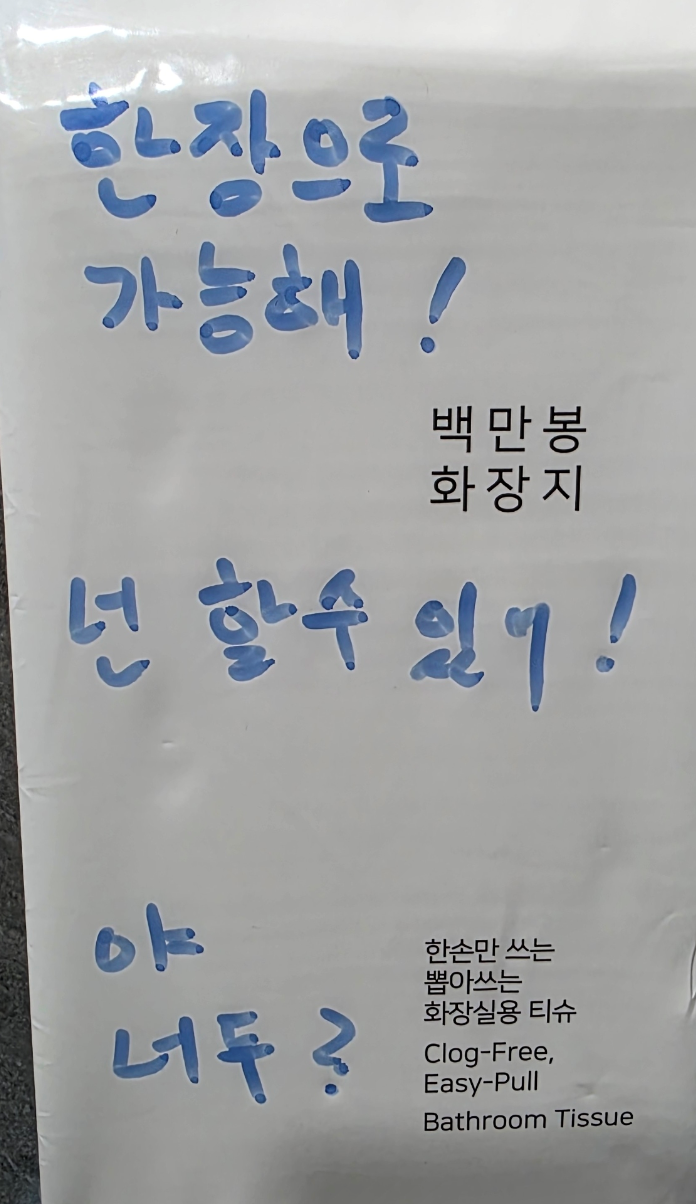 한장으로
가능해!
백만봉
화장지
넌 할수 있어!
야
너두?
한손만 쓰는
뽑아쓰는
화장실용 티슈
Clog-Free,
Easy-Pull
Bathroom Tissue